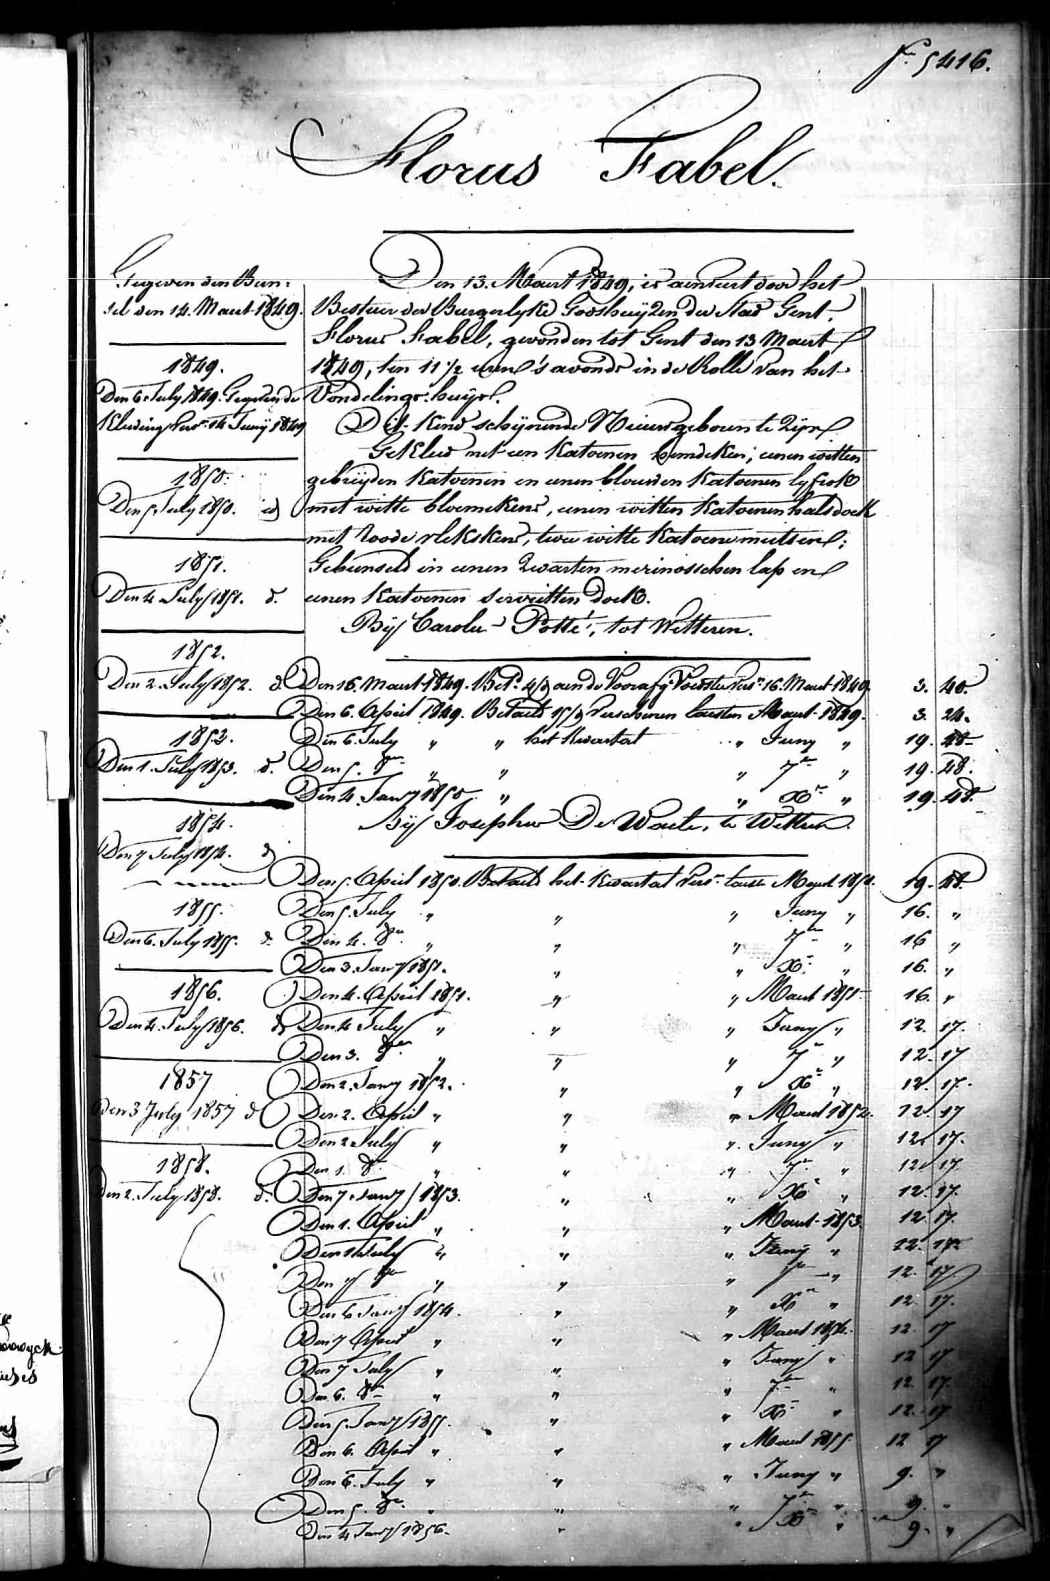 f° 5416.
Florus Fabel.
Gegeven den Bun-
sel den 14. Maart 1849.
1849.
Den 6 July 1849. Gegeven de
Kleeding Vers. 14 Juny 1849
1850.
Den 5 July 1850. id
1851.
Den 4 July 1851. d.
1852.
Den 2. July 1852. d.
1853.
Den 1. July 1853. d.
1854.
Den 7 July 1854. d
1855.
Den 6. July 1855. d.
1856.
Den 4. July 1856. d
1857
Den 3 July 1857 d
1858.
Den 2. July 1858. d.
Den 13. Maart 1849, is aenveert door het
Bestuer der Burgerlyke Godshuyzen der Stad Gent,
Florus Fabel, gevonden tot Gent den 13 Maart
1849, ten 11 1/2 uren 's avonds in de Rolle van het
Vondelings-huys.
Dit Kind schynende Nieuwgeboren te Zyn
Gekleed met een Katoenen hemdeken, eenen witten
gebreyden Katoenen en eenen blauwen Katoenen lyfrok
met witte bloemekens, eenen witten Katoenen halsdoek
met roode vlekskens, twee witte Katoene mutsen;
Gebunseld in eenen Zwarten merinosschen lap en
eenen Katoenen servietten doek.
By Carolus Potté, tot Wetteren.
Den 16. Maart 1849. Bet. 4/3 aen de Vers. 16. Maart 1849. 3. 40.
Den 6. April 1849. Betaeld 15/3 Verschenen lasten Maart 1849. 3. 24.
Den 6. July " " het Kwartat " Juny " 19. 48
Den 5. 8er " " " 7er " 19. 48.
Den 4. Jany 1850 " " Xr " 19. 48.
By Josephus De Waele, te Wetteren.
Den 5. April 1850. Betaeld het Kwartat Vers. laste Maart 1850. 19. 48.
Den 5. July " " " Juny " 16. "
Den 4. 8er " " " 7er " 16 "
Den 3. Jany 1851. " " Xr " 16. "
Den 4. April 1851. " " Maart 1851 16. "
Den 4 July " " " Juny " 12. 17.
Den 3. 8er " " " 7r " 12. 17
Den 2. Jany 1852. " " Xr " 12. 17.
Den 2. April " " " Maart 1852. 12. 17
Den 2 July " " " Juny " 12. 17.
Den 1. 8er " " " 7r " 12. 17.
Den 7. Jany 1853. " " Xr " 12. 17.
Den 1. April " " " Maart 1853 12. 17.
Den 1 July " " " Juny " 12. 17
Den 7 8er " " " 7er " 12. 17
Den 6 Jany 1854. " " Xr " 12. 17.
Den 7 April " " " Maart 1854. 12. 17
Den 7 July " " " Juny " 12 17
Den 6. 8er " " " 7er " 12 17.
Den 5 Jany 1855. " " Xr " 12. 17
Den 6. April " " " Maart 1855 12 17
Den 6. July " " " Juny " 9. "
Den 5. 8er " " " 7er " 9. "
Den 4 Jany 1856. " " Xr " 9. "